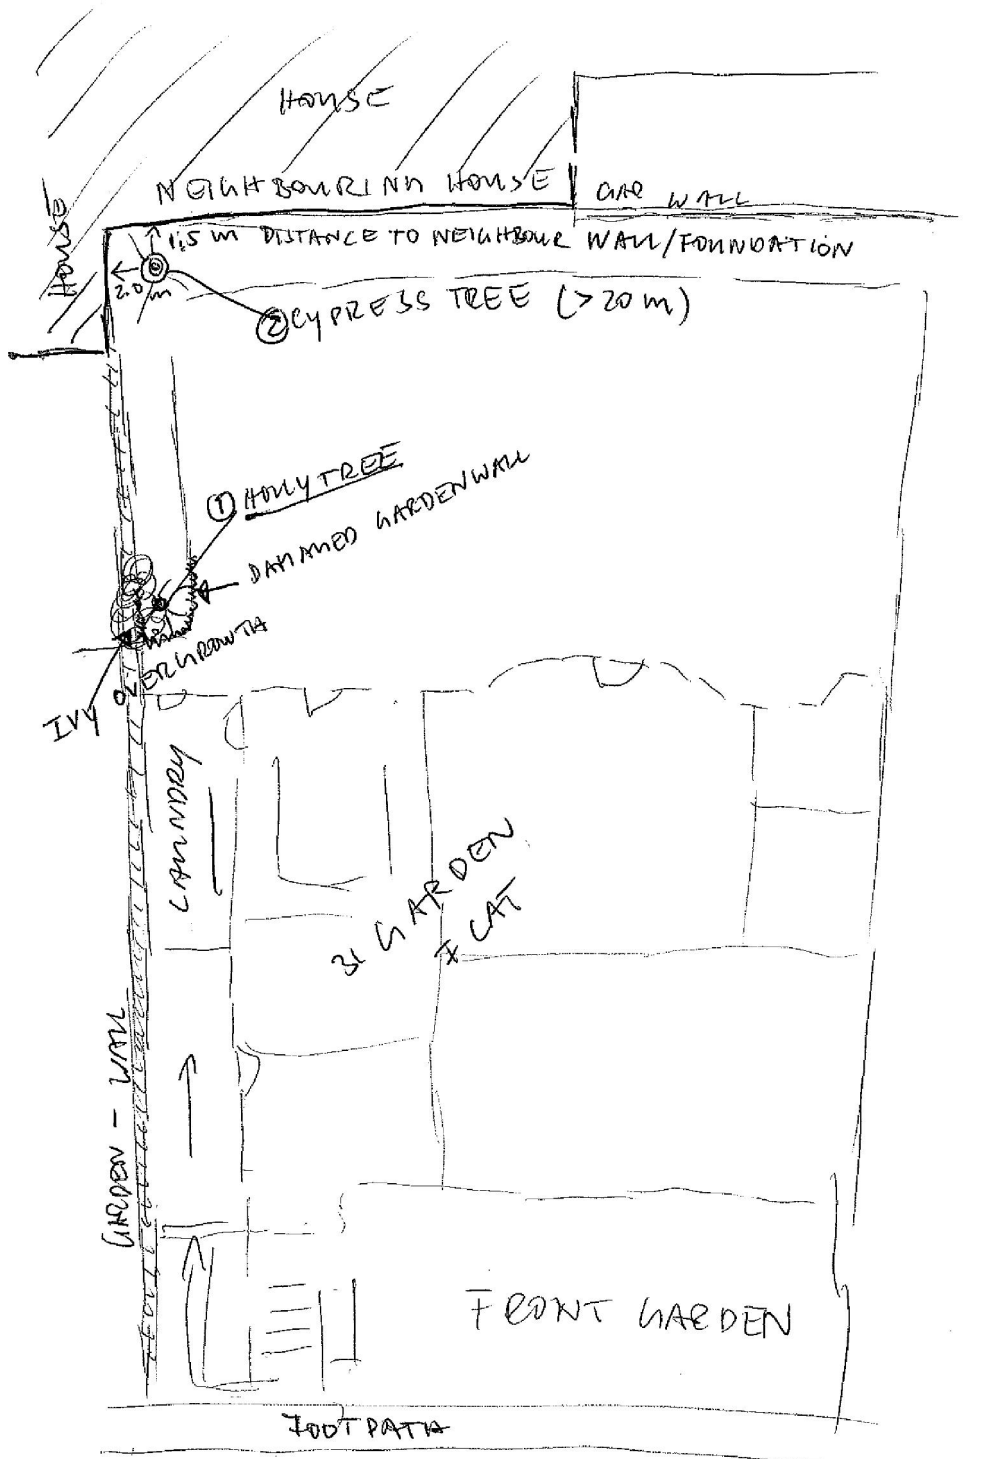 HOUSE
NEIGHBOURING HOUSE
WALL
HOUSE
1,5 m DISTANCE TO NEIGHBOUR WALL/FOUNDATION
2.0 m
② CYPRESS TREE (>20m)
① HOLLY TREE
DAMAGED GARDENWALL
IVY OVERGROWTH
LAUNDRY
31 GARDEN
FLAT
GARDEN - WALL
FRONT GARDEN
FOOTPATH